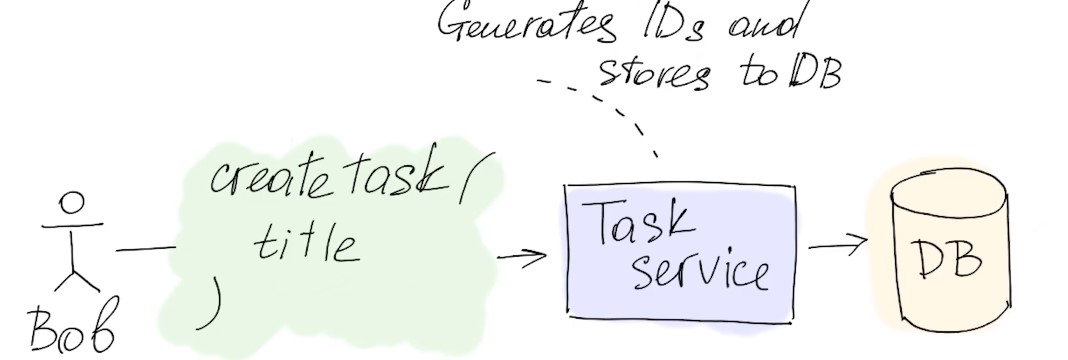 Generates IDs and
stores to DB
create task (
title
)
Task
service
DB
Bob